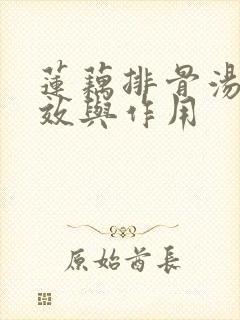 蓮藕排骨湯
效與作用
原始酋長